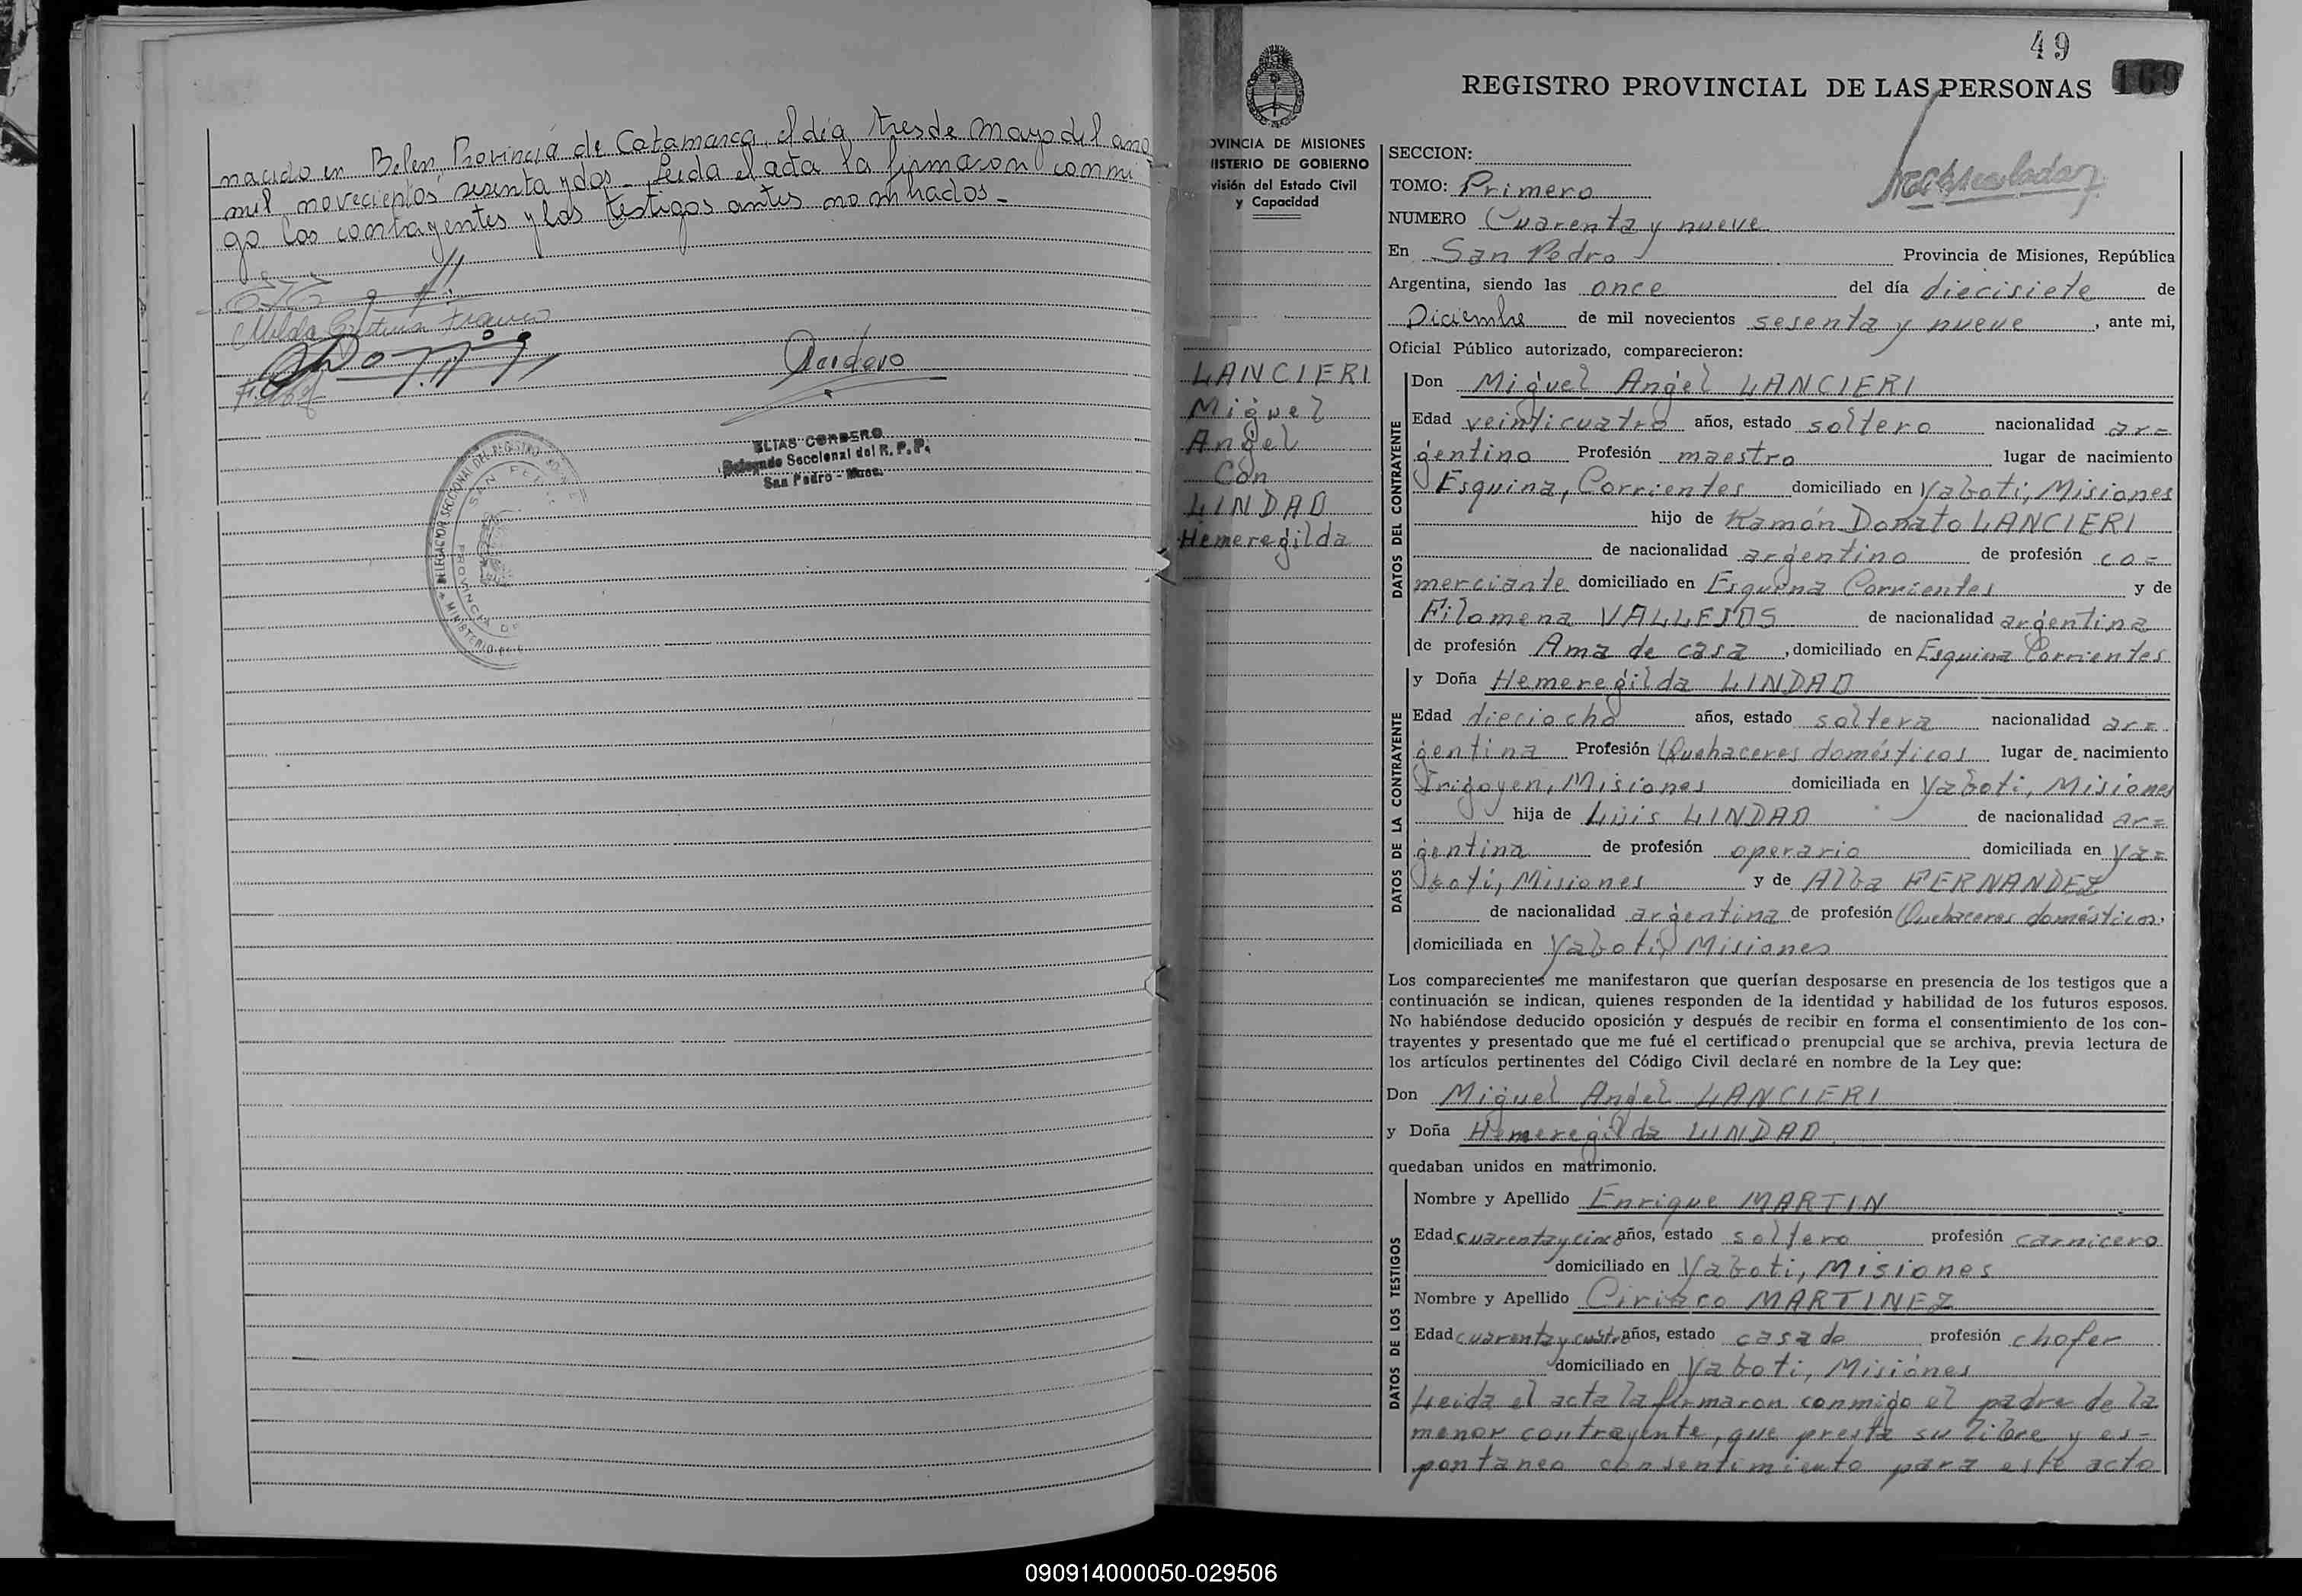 nacido en Belen, Provincia de Catamarca, el día tres de Mayo del año
mil novecientos sesenta y dos - Leida el acta la firmaron conmi
go los contrayentes y los testigos antes nominados -
Nilda Cristina Franco
Cordero
ELIAS CORDERO
Delegado Seccional del R. P. P.
San Pedro - Mnes.
DELEGACION SECCIONAL DEL REGISTRO
SAN PEDRO
PROVINCIA DE
MINISTERIO DE G
49
169
REGISTRO PROVINCIAL DE LAS PERSONAS
OVINCIA DE MISIONES
ISTERIO DE GOBIERNO
visión del Estado Civil
y Capacidad
LANCIERI
Miguel
Angel
Con
LINDAO
Hemeregilda
SECCION:
TOMO: Primero
NUMERO Cuarenta y nueve
En San Pedro Provincia de Misiones, República
Argentina, siendo las once del día diecisiete de
Diciembre de mil novecientos sesenta y nueve, ante mi,
Oficial Público autorizado, comparecieron:
DATOS DEL CONTRAYENTE
Don Miguel Angel LANCIERI
Edad veinticuatro años, estado soltero nacionalidad ar=
gentino Profesión maestro lugar de nacimiento
Esquina, Corrientes domiciliado en Yaboti, Misiones
hijo de Ramón Donato LANCIERI
de nacionalidad argentino de profesión co=
merciante domiciliado en Esquina Corrientes y de
Filomena VALLEJOS de nacionalidad argentina
de profesión Ama de casa, domiciliado en Esquina Corrientes
DATOS DE LA CONTRAYENTE
y Doña Hemeregilda LINDAO
Edad dieciocho años, estado soltera nacionalidad ar=
gentina Profesión Quehaceres domésticos lugar de nacimiento
Irigoyen, Misiones domiciliada en Yaboti, Misiones
hija de Luis LINDAO de nacionalidad ar=
gentina de profesión operario domiciliada en Ya=
boti, Misiones y de Alba FERNANDEZ
de nacionalidad argentina de profesión Quehaceres domésticos,
domiciliada en Yaboti, Misiones
Los comparecientes me manifestaron que querían desposarse en presencia de los testigos que a
continuación se indican, quienes responden de la identidad y habilidad de los futuros esposos.
No habiéndose deducido oposición y después de recibir en forma el consentimiento de los con-
trayentes y presentado que me fué el certificado prenupcial que se archiva, previa lectura de
los artículos pertinentes del Código Civil declaré en nombre de la Ley que:
Don Miguel Angel LANCIERI
y Doña Hemeregilda LINDAO
quedaban unidos en matrimonio.
DATOS DE LOS TESTIGOS
Nombre y Apellido Enrique MARTIN
Edad cuarenta y cinco años, estado soltero profesión carnicero
domiciliado en Yaboti, Misiones
Nombre y Apellido Ciriaco MARTINEZ
Edad cuarenta y cuatro años, estado casado profesión chofer
domiciliado en Yaboti, Misiones
Leida el acta la firmaron conmigo el padre de la
menor contrayente, que presta su libre y es=
pontaneo consentimiento para este acto
090914000050-029506